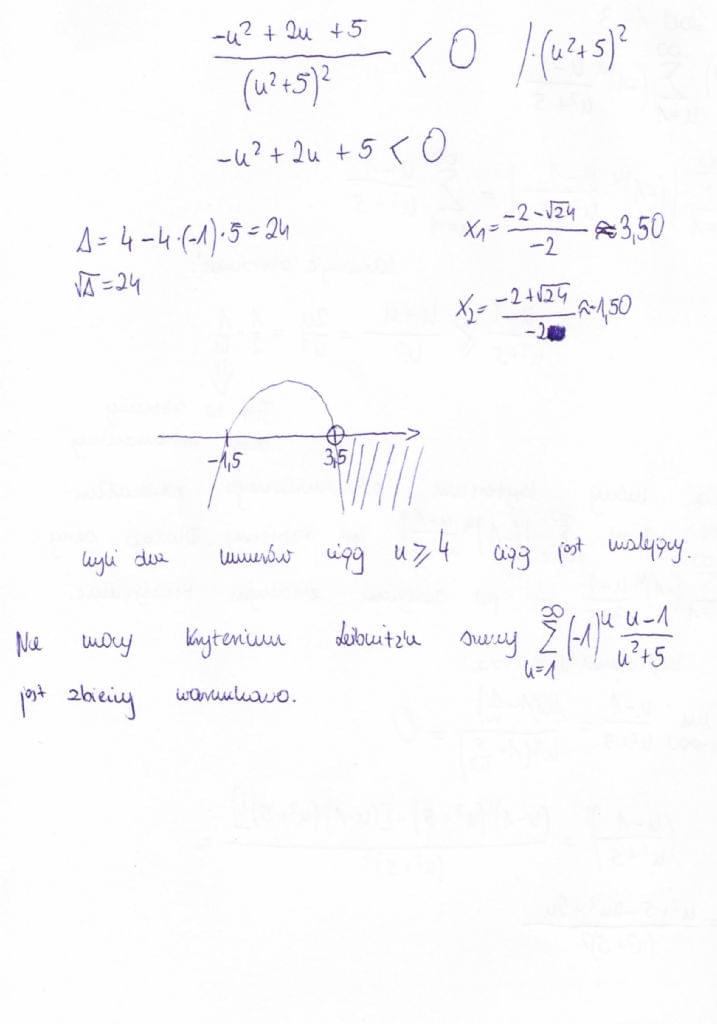 -u² + 2u + 5 / (u²+5)² < 0 /·(u²+5)²
-u² + 2u + 5 < 0
Δ = 4 - 4·(-1)·5 = 24
√Δ = 24
x₁ = (-2-√24)/-2 ≈ 3,50
x₂ = (-2+√24)/-2 ≈ -1,50
-1,5 3,5
czyli dla ciąg u ⩾ 4 ciąg jest malejący.
Na mocy kryterium Leibnitza szereg ∞ ∑ u=1 (-1)ᵘ (u-1)/(u²+5)
jest zbieżny warunkowo.